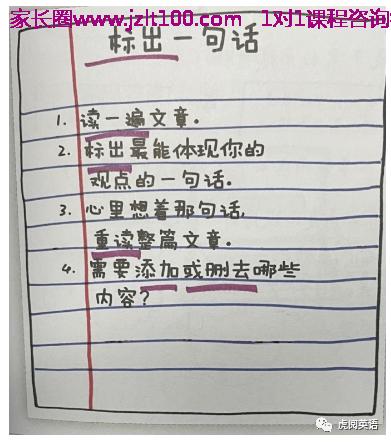 家长圈www.jzlt100.com 1对1课程咨询
标出一句话
1. 读一遍文章.
2. 标出最能体现你的
观点的一句话.
3. 心里想着那句话,
重读整篇文章.
4. 需要添加或删去哪些
内容?
虎阅英语